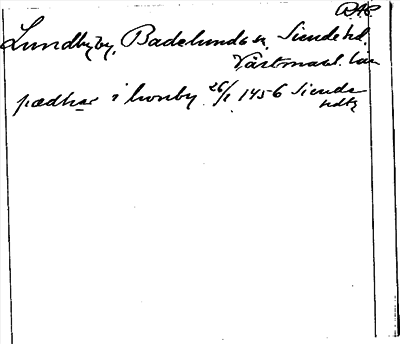 RAP
Lundby by, Badelunda sn, Siende hd.
Västmanl. län
pædhar i lwnby 26/1 1456 Siende